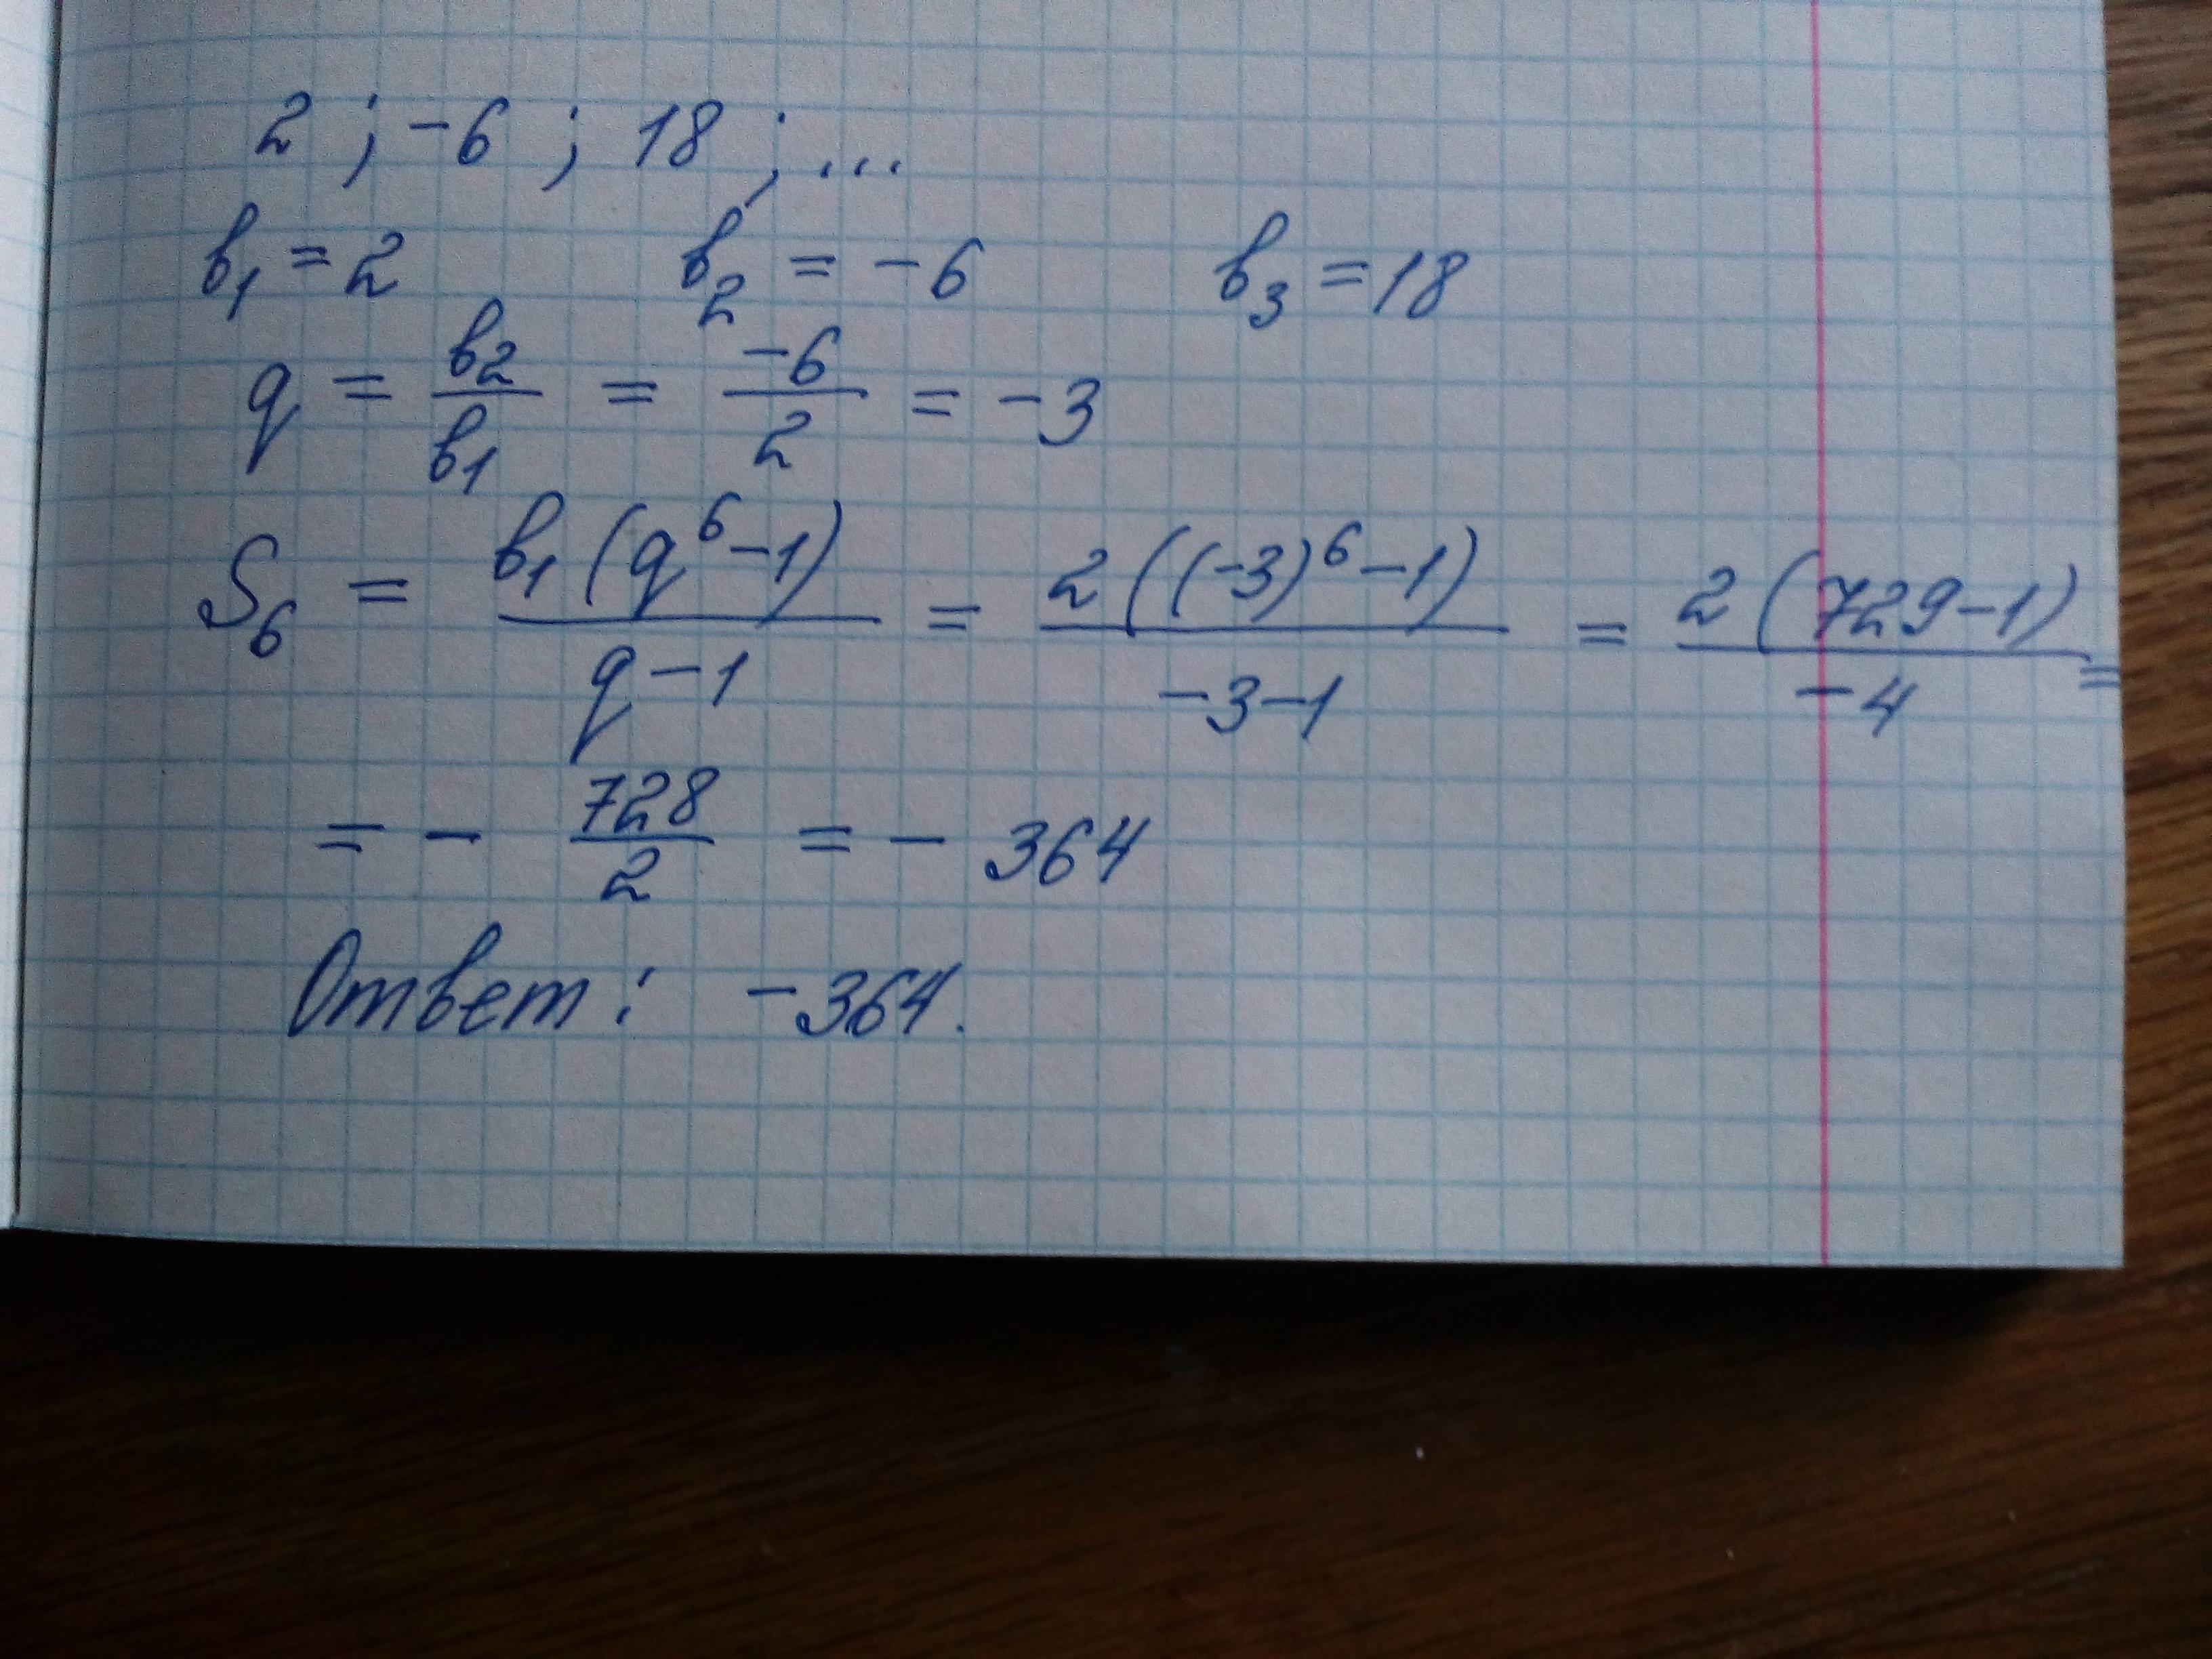 2 ; -6 ; 18 ; ...
b₁ = 2 b₂ = -6 b₃ = 18
q = b₂/b₁ = -6/2 = -3
S₆ = b₁(q⁶-1)/(q-1) = 2((-3)⁶-1)/(-3-1) = 2(729-1)/(-4) =
= - 728/2 = - 364
Ответ: -364.